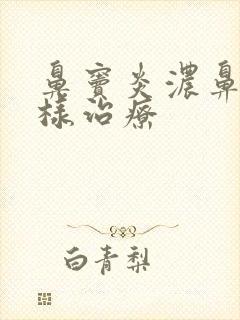 鼻窦炎浓鼻
样治疗
白青梨